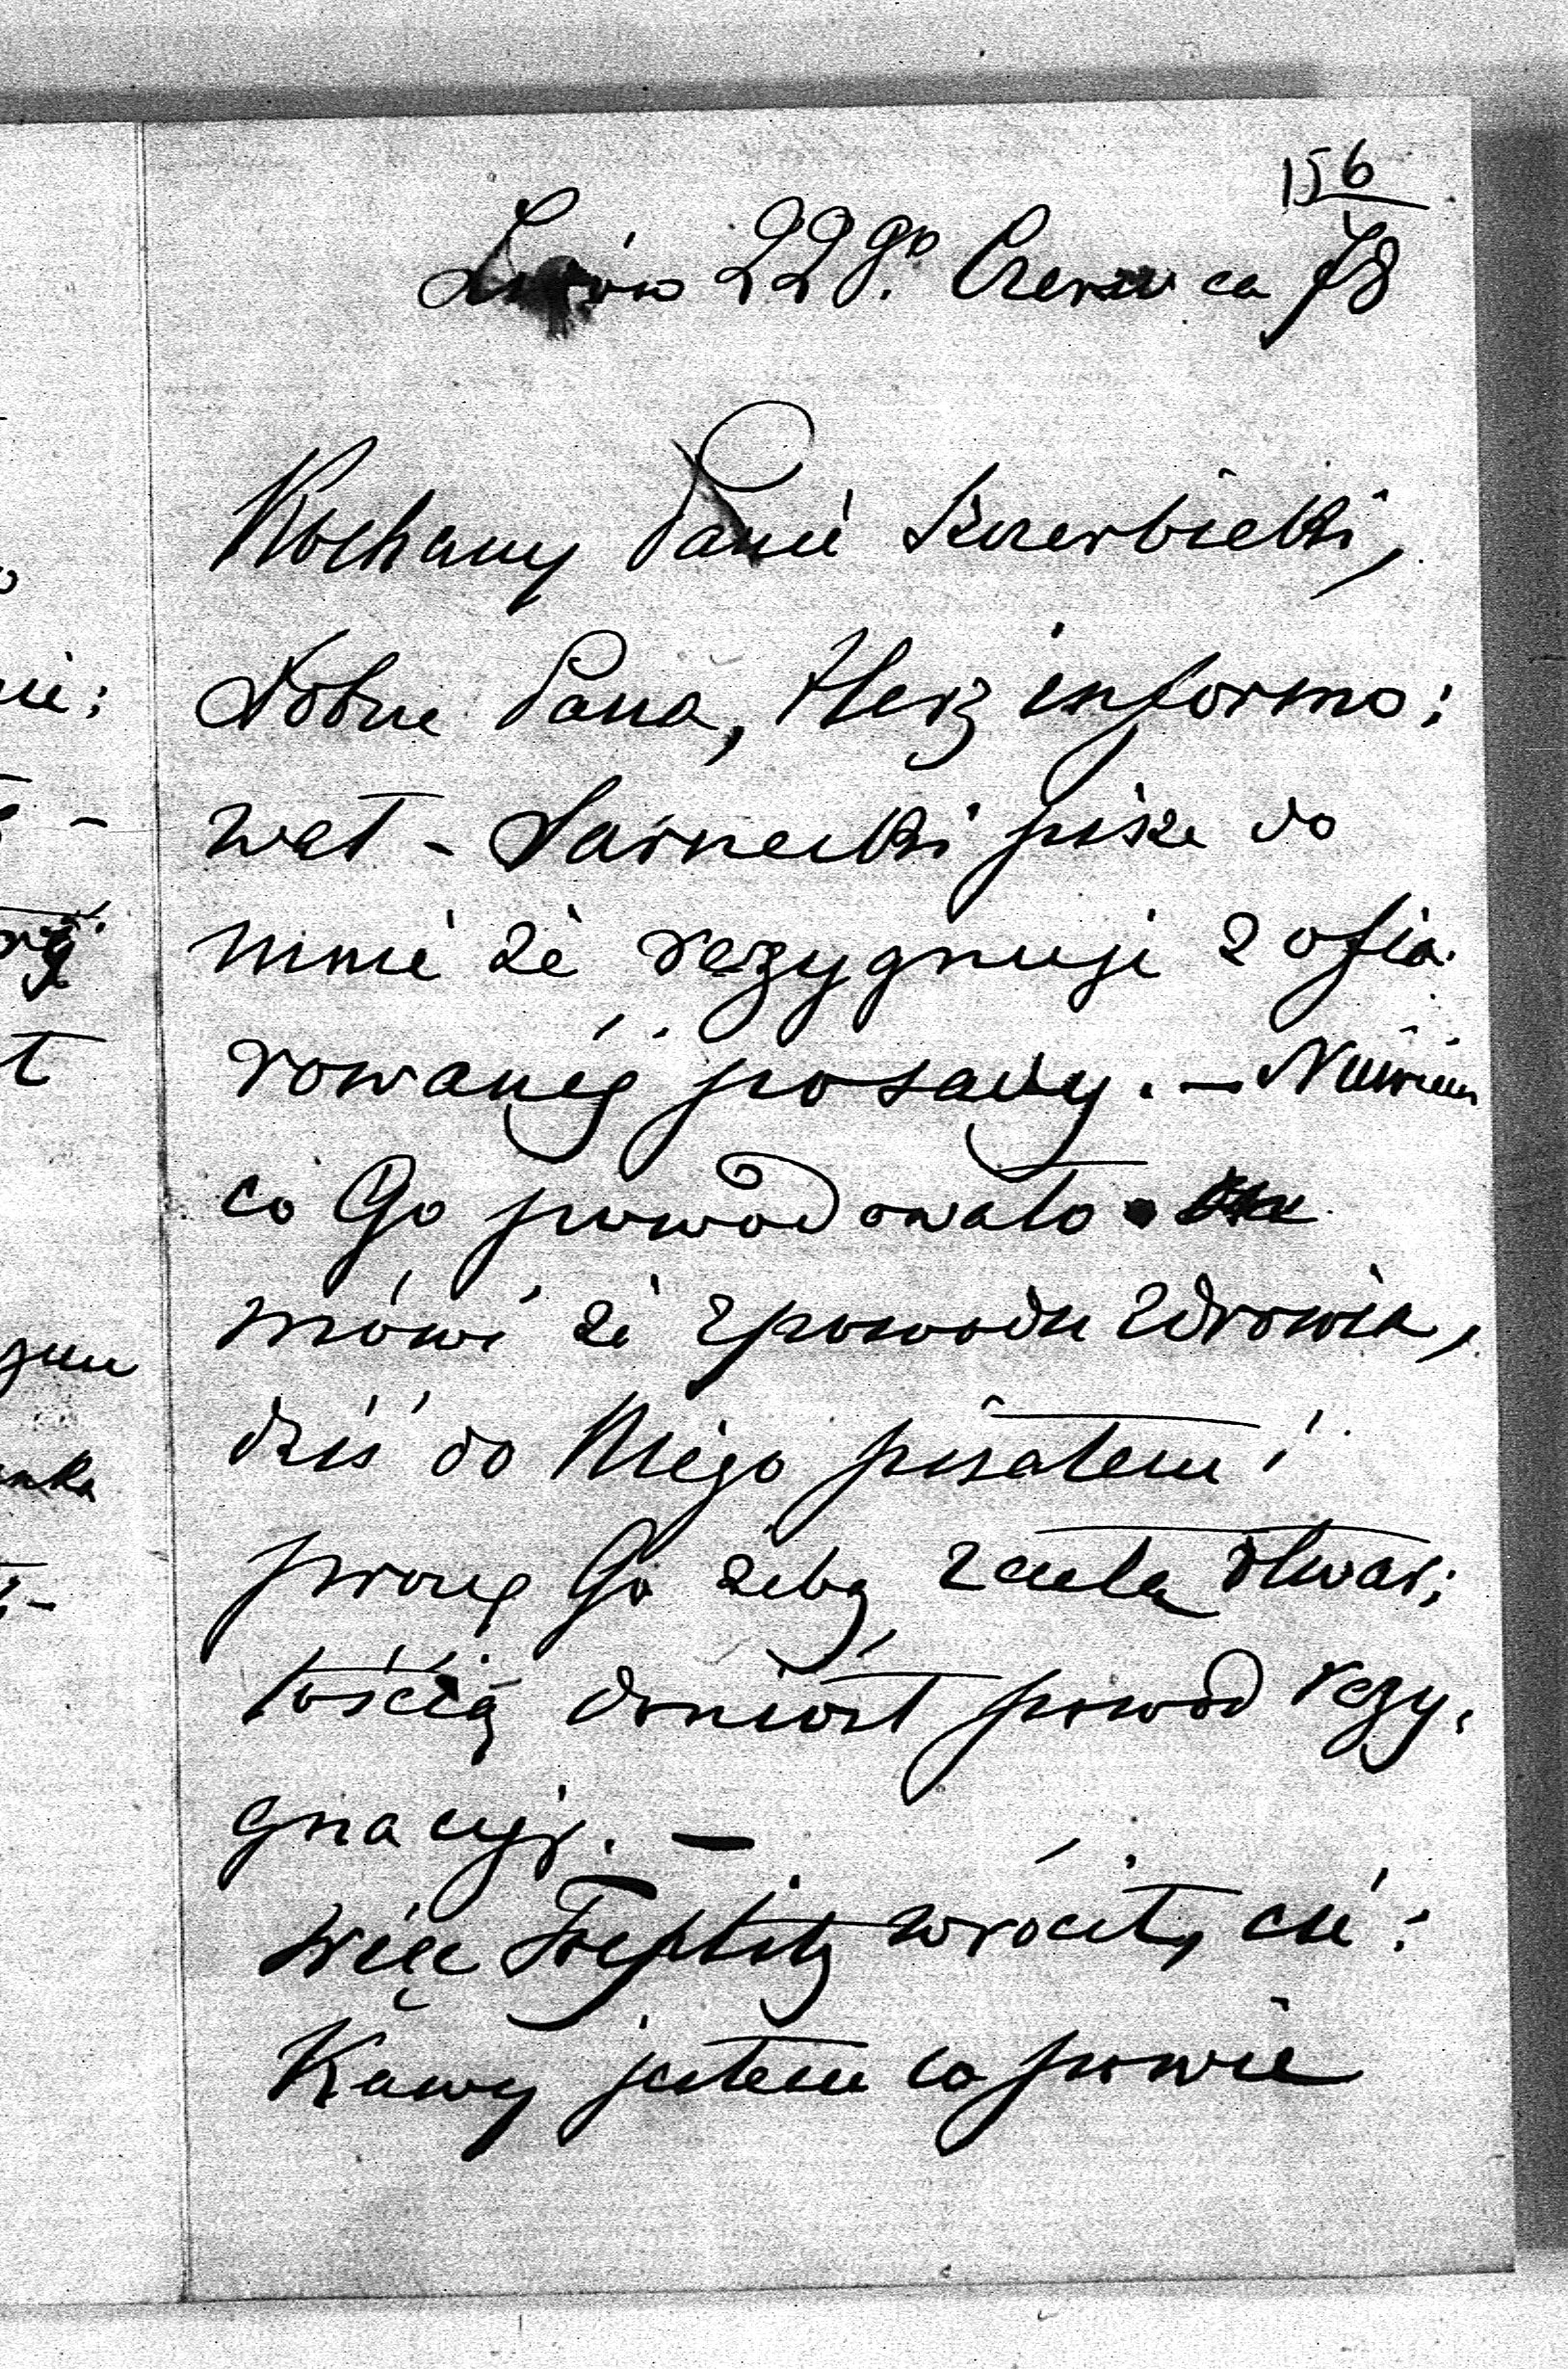 156
Lwów 22go. Czerwca 78
Kochany Panie
Dobre Pana, Herz informo:
wał - Sarnecki pisze do
mnie że rezygnuje z ofia.
rowanéj posady. — Niewiem
co Go powodowało
mówi że zpowodu zdrowia,
dziś do Niego pisałem i
proszę Go żeby z całą otwar;
tością doniósł powód rezy,
gnacyj. —
więc wrócił, cie:
Kawy jestem co powie